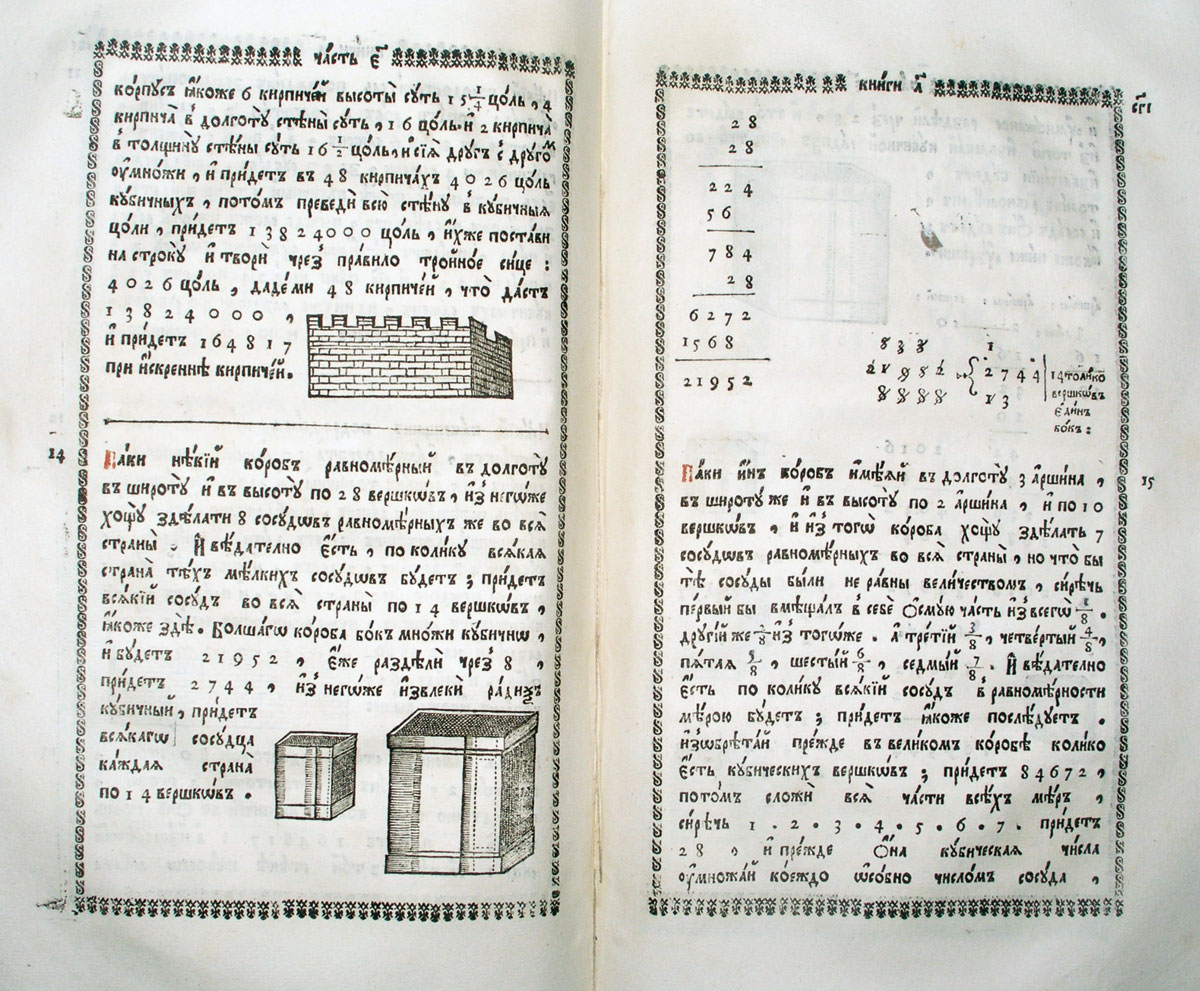 часть є҃
корпусъ ꙗ҆́коже 6 кирпиче́й высоты̀ сꙋ́ть 15 1/4 цо́ль, 4
кирпича̀ в̾ долготꙋ̀ стѣны̀ сꙋ́ть, 16 цо́ль. и҆ 2 кирпича̀
в̾ толщинꙋ̀ стѣны̀ сꙋ́ть 16 1/2 цо́ль, и҆ сїѧ̑ дрꙋ́гъ с̾ дрꙋго́м
ᲂу҆мно́жи, и҆ прїи́детъ въ 48 кирпича́хъ 4026 цо́ль
кꙋби́чныхъ, пото́мъ преведѝ всю̀ стѣ́нꙋ в̾ кꙋби́чныѧ
цо́ли, прїи́детъ 13824000 цо́ль, и҆́хже поста́ви
на строкꙋ̀ и҆ творѝ чрез̾ пра́вило тройно́е си́це:
4026 цо́ль, даде́ ми 48 кирпиче́й, что̀ да́стъ
13824000,
и҆ прїи́детъ 164817
при и҆́скреннѣ кирпиче́й.
14
Па́ки нѣ́кїй ко́робъ равномѣ́рный въ долготꙋ̀
въ широтꙋ̀ и҆ въ высотꙋ̀ по 28 вершкѡ́въ, и҆з̾ негѡ́же
хощꙋ̀ здѣ́лати 8 сосꙋ́дѡвъ равномѣ́рныхъ же во всѧ̑
страны̀. И҆ вѣ́дательно є҆́сть, по коли́кꙋ всѧ́каѧ
страна̀ тѣ́хъ мѣ́лкихъ сосꙋ́дѡвъ бꙋ́детъ; прїи́детъ
всѧ́кїй сосꙋ́дъ во всѧ̑ страны̀ по 14 вершкѡ́въ,
ꙗ҆́коже здѣ̀. Бо́лшагѡ ко́роба бо́къ мно́жи кꙋби́чнѡ,
и҆ бꙋ́детъ 21952, є҆́же раздѣлѝ чрез̾ 8,
прїи́детъ 2744, и҆з̾ негѡ́же и҆звлекѝ ра́диѯъ
кꙋби́чный, прїи́детъ
всѧ́кагѡ сосꙋ́дца
ка́ждаѧ страна̀
по 14 вершкѡ́въ.
кни́ги а҃
рє҃і
28
28
224
56
784
28
6272
1568
21952
2744
13
14 толи́кѡ
вершкѡ́въ
є҆ди́нъ
бо́къ:
15
Па́ки и҆́нъ ко́робъ и҆мѣ́ѧй въ долготꙋ̀ 3 а҆рши́на,
въ широтꙋ́ же и҆ въ высотꙋ̀ по 2 а҆рши́на, и҆ по 10
вершкѡ́въ, и҆ и҆з̾ тогѡ̀ ко́роба хощꙋ̀ здѣ́лать 7
сосꙋ́дѡвъ равномѣ́рныхъ во всѧ̑ страны̀, но что̀ бы
тѣ̀ сосꙋ́ды бы́ли не равны̀ вели́чествомъ, си́рѣчь
пе́рвый бы вмѣща́лъ в̾ себѐ ѻ҆смꙋ́ю ча́сть и҆з̾ всегѡ̀ 1/8.
дрꙋгі́й же 2/8 и҆з̾ тогѡ́же. а҆ тре́тїй 3/8, четве́ртый 4/8,
пѧ́таѧ 5/8, шесты́й 6/8, седмы́й 7/8. И҆ вѣ́дательно
є҆́сть по коли́кꙋ всѧ́кїй сосꙋ́дъ в̾ равномѣ́рности
мѣ́рою бꙋ́детъ; прїи́детъ ꙗ҆́коже послѣ́дꙋетъ.
и҆з̾ѡбрѣта́й пре́жде въ вели́комъ ко́робѣ коли́ко
є҆́сть кꙋби́ческихъ вершкѡ́въ; прїи́детъ 84672,
пото́мъ сложѝ всѧ̑ ча́сти всѣ́хъ мѣ́ръ,
си́рѣчь 1. 2. 3. 4. 5. 6. 7. прїи́детъ
28, и҆ пре́жде ѻ҆́на кꙋби́ческаѧ чи́сла
ᲂу҆множа́й кое́ждо ѡ҆со́бно число́мъ сосꙋ́да,